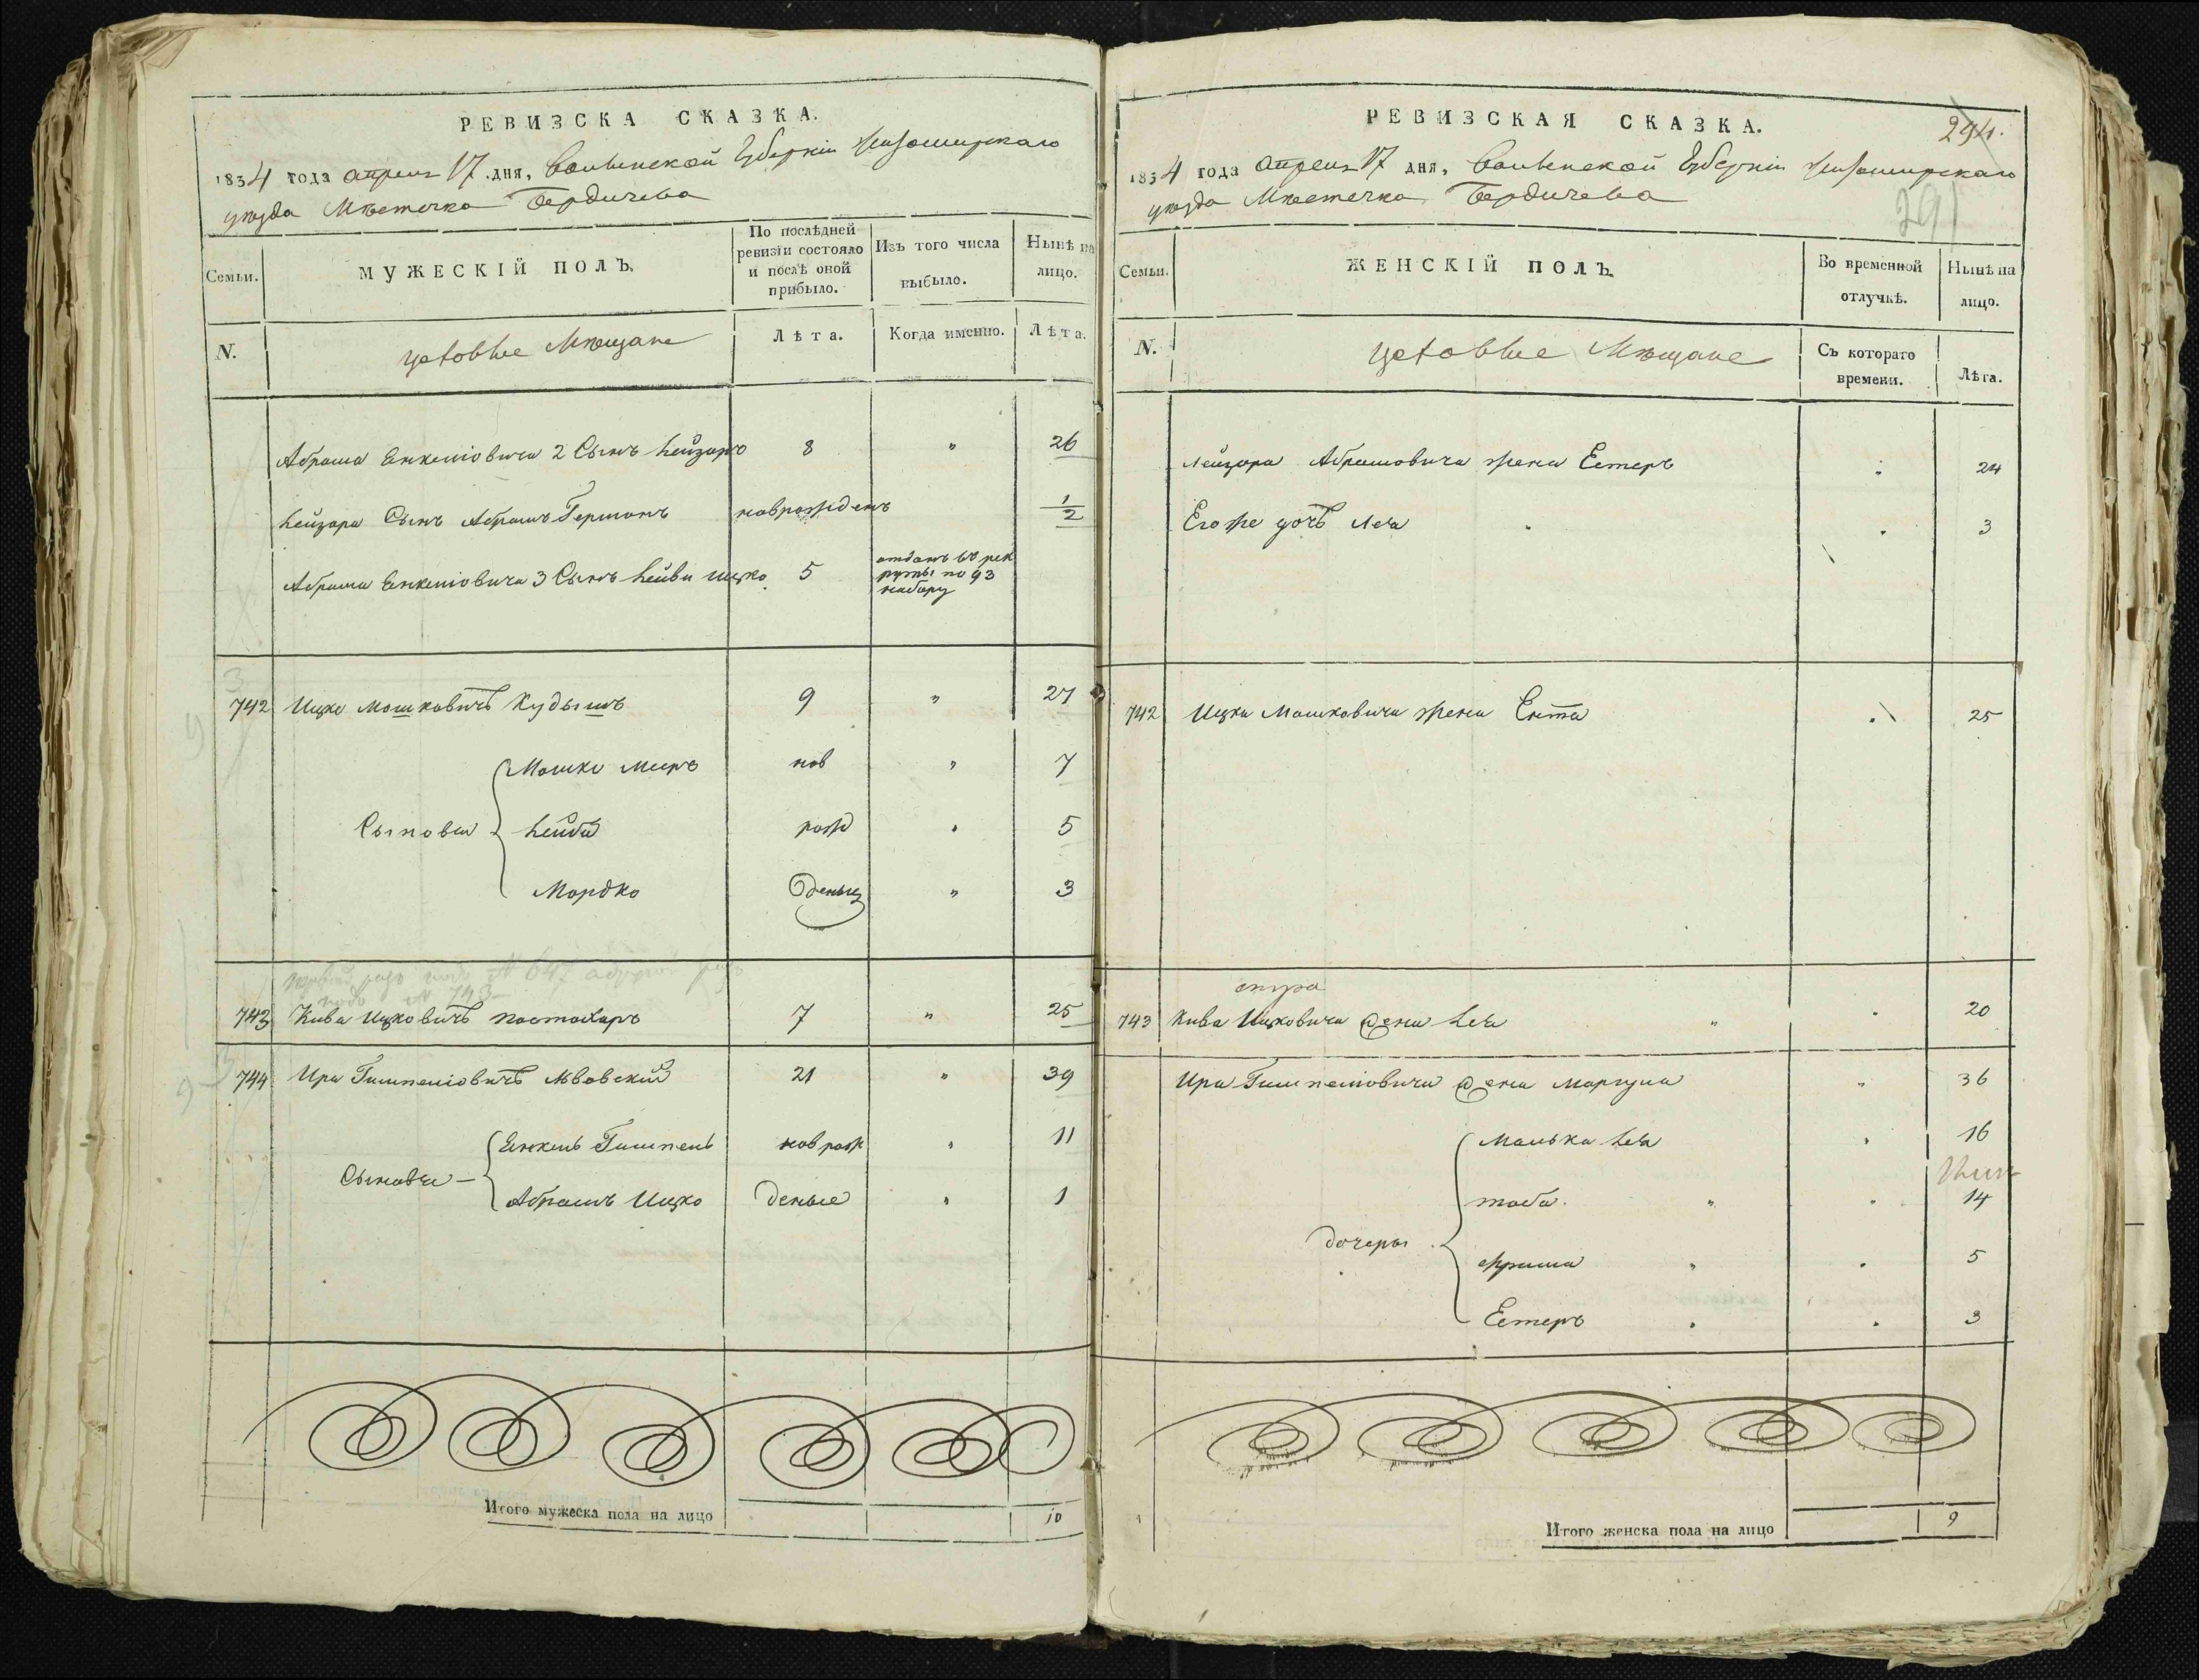 РЕВИЗСКА СКАЗКА.
1834 года апреля 17 дня, Волынской Губерніи Житомирскаго
уезда Мѣстечка Бердичева
Семьи.
МУЖЕСКІЙ ПОЛЪ.
По послѣдней ревизіи состояло и послѣ оной прибыло.
Изъ того числа выбыло.
Нынѣ на лицо.
N.
цеховые Мѣщане
Лѣта.
Когда именно.
Лѣта.
Абрама Енкелiовича 2 Сынъ Лейзоръ 8 " 26
Лейзора Сынъ Абрамъ Гершонъ новрожденъ 1/2
Абрама Енкелiовича 3 Сынъ Лейба Ицко 5 отданъ въ рек
руты по 93
набору
742 Ицко Мошковичъ Кудышъ 9 " 27
Мошко Меиръ нов " 7
Сыновья Лейба рож " 5
Мордко Деныя " 3
под N 743
743 Кива Ицковичъ 7 " 25
744 Ира Гимпелiовичъ Львовскій 21 " 39
Енкель Гимпель новрож " 11
Сыновья
Абрамъ Ицко деные " 1
Итого мужеска пола на лицо 10
РЕВИЗСКАЯ СКАЗКА.
294.
1834 года апреля 17 дня, Волынской Губерніи Житомирскаго
уезда Мѣстечка Бердичева
291
Семьи.
ЖЕНСКІЙ ПОЛЪ.
Во временной отлучкѣ.
Нынѣ на лицо.
N.
цеховые Мѣщане
Съ котораго времени.
Лѣта.
Лейзора Абрамовича жена Естеръ " 24
Его же дочь Леа " 3
742 Ицка Мошковича жена Ента " 25
743 Кива Ицковича жена Леа " 20
Ира Гимпелiовича жена " 36
Малька Леа " 16
тоба " 14
дочеры
" 5
Естеръ " 3
Итого женска пола на лицо 9